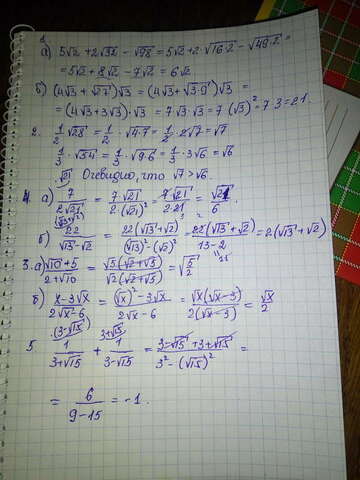 1.
а) 5√2 + 2√32 − √98 = 5√2 + 2·√16·2 − √49·2 =
= 5√2 + 8√2 − 7√2 = 6√2
б) (4√3 + √27)√3 = (4√3 + √3·9)√3 =
= (4√3 + 3√3)·√3 = 7√3·√3 = 7(√3)² = 7·3 = 21.
2. 1/2 √28 = 1/2 · √4·7 = 1/2 · 2√7 = √7
1/3 · √54 = 1/3 · √9·6 = 1/3 · 3√6 = √6
Очевидно, что √7 > √6.
4. а) 7/2√21 = 7√21/2(√21)² = 7√21/2·21 = √21/6
б) 22/√13−√2 = 22(√13+√2)/(√13)²−(√2)² = 22(√13+√2)/13−2 = 2(√13+√2)
11
3. а) √10+5/2+√10 = √5(√2+√5)/√2(√2+√5) = √5/2
б) x−3√x/2√x−6 = (√x)²−3√x/2√x−6 = √x(√x−3)/2(√x−3) = √x/2
(3−√15) 3+√15
5 1/3+√15 + 1/3−√15 = 3−√15+3+√15/3²−(√15)² =
= 6/9−15 = −1.